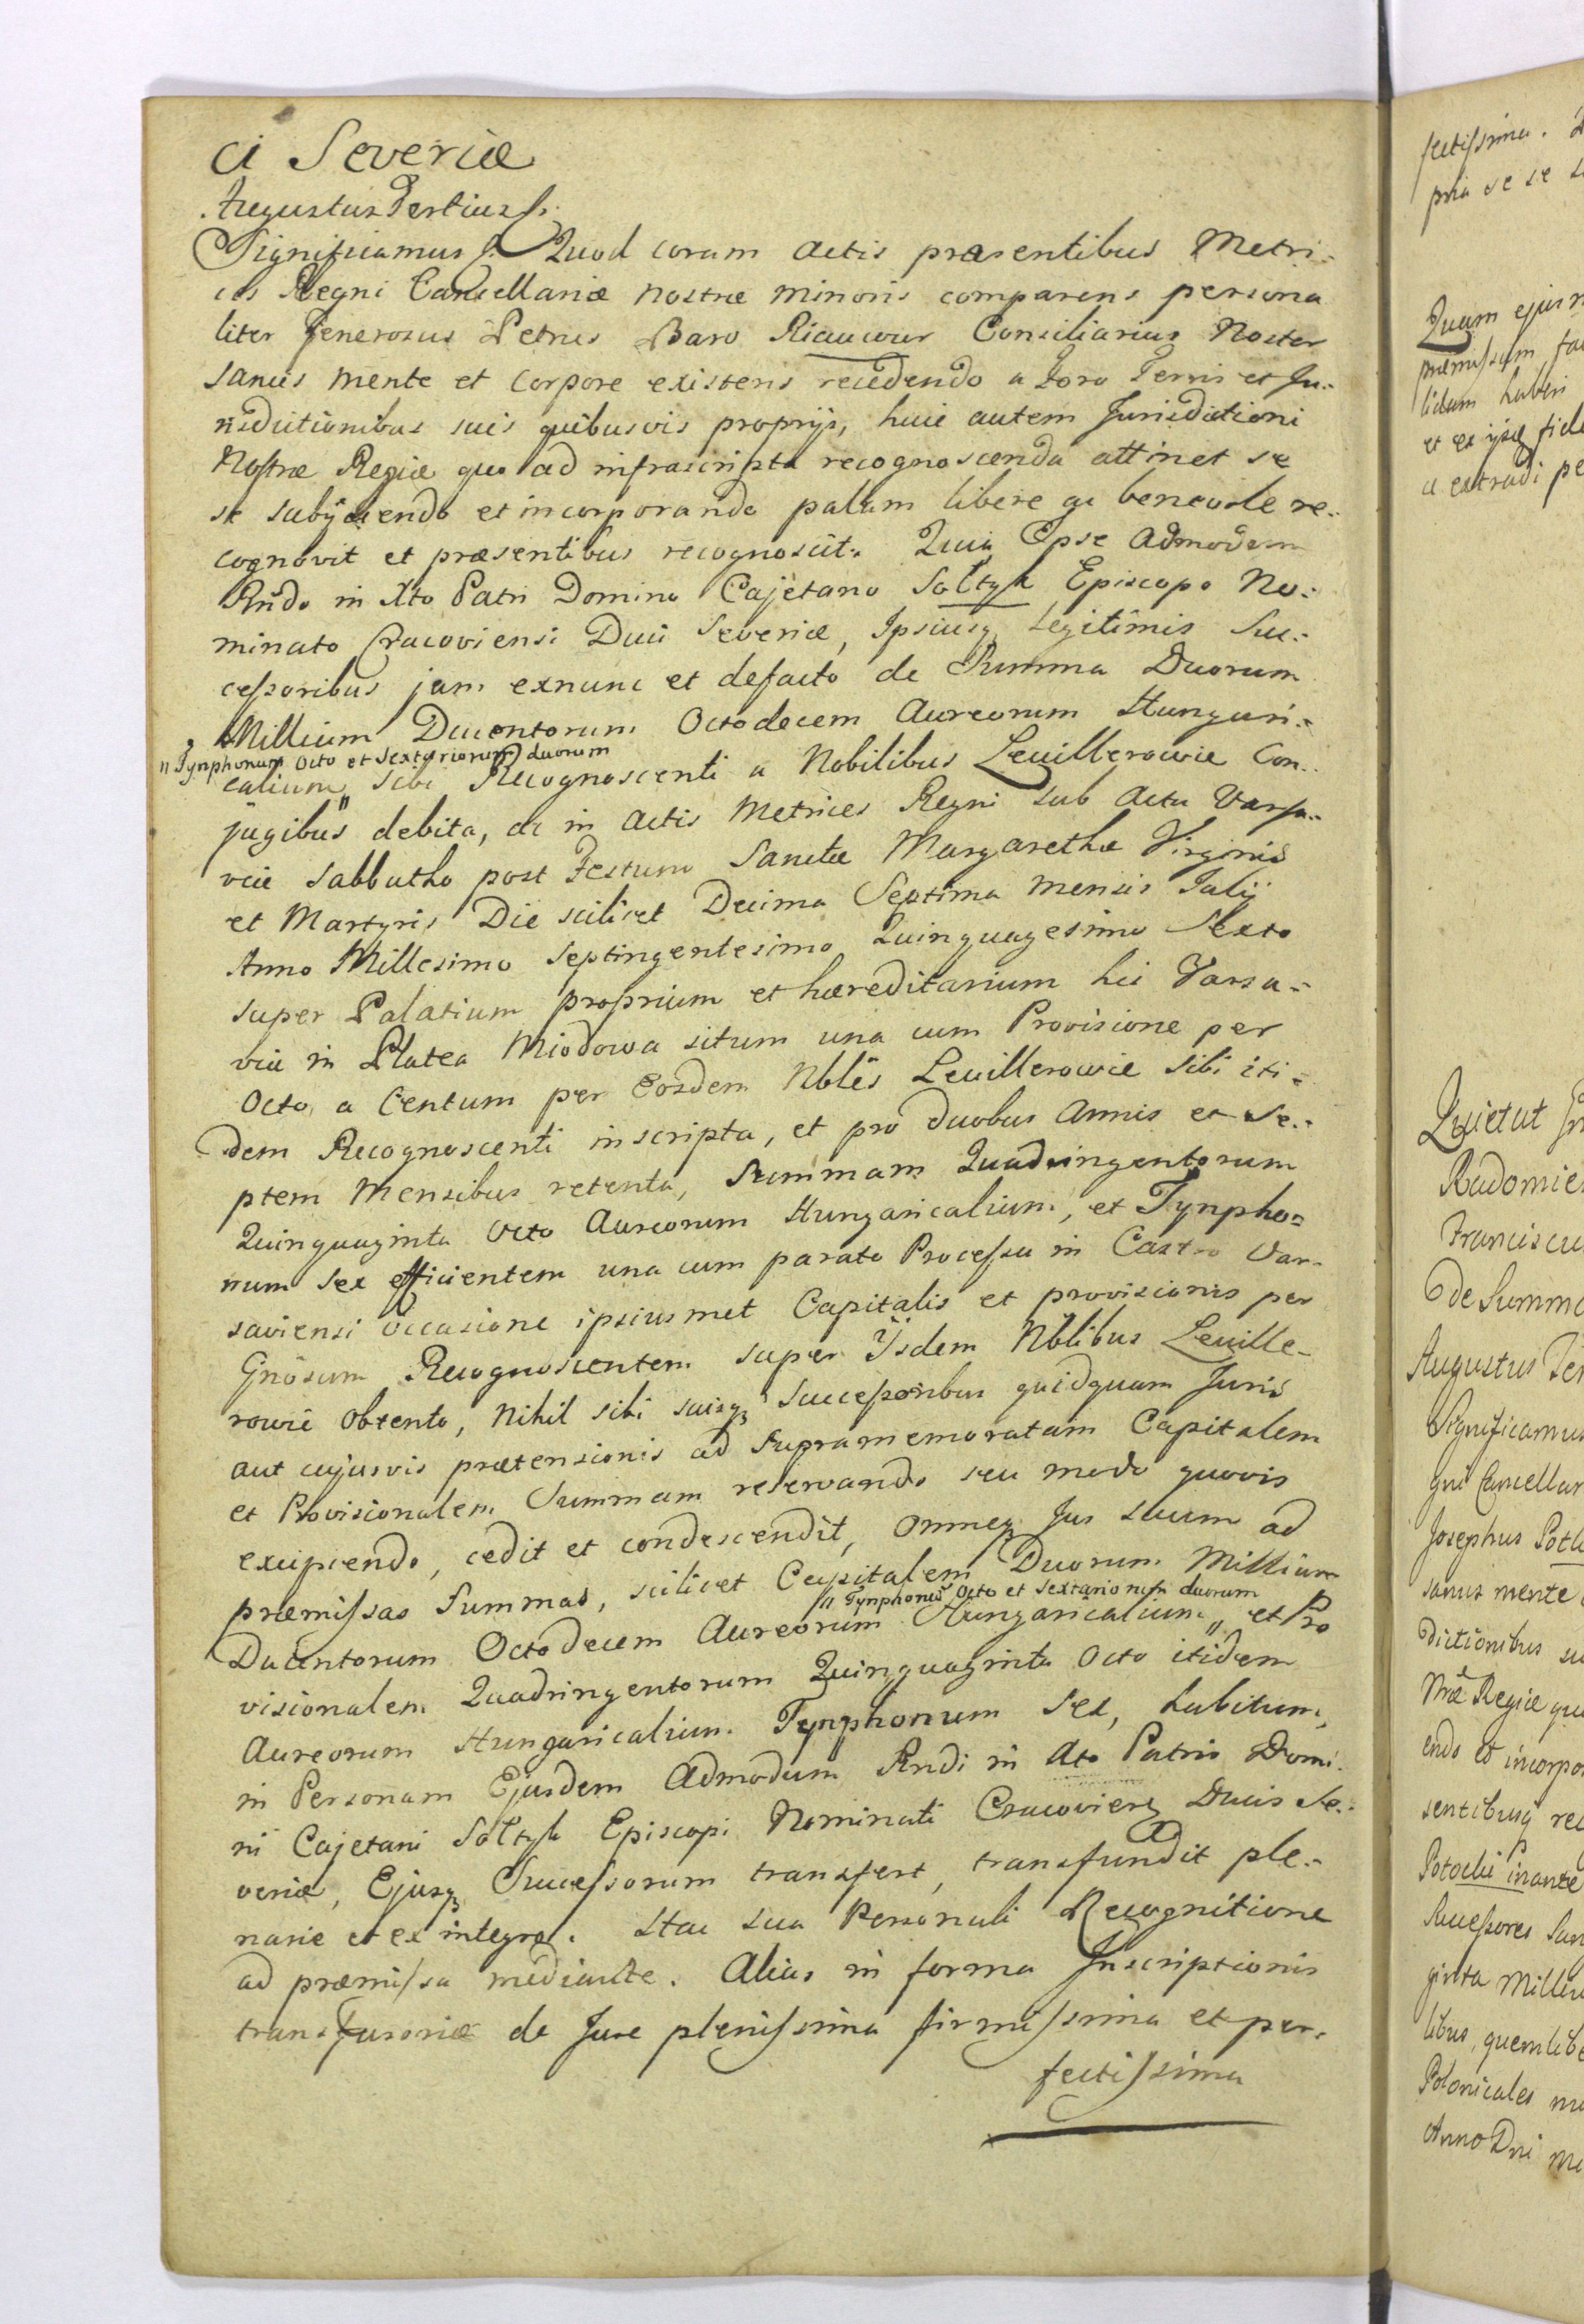 ci Severiæ
Augustus Tertius &.
Significamus &. Quod coram Actis præsentibus Metri-
ces Regni Cancellariæ Nostræ Minoris comparens persona
liter Generosus Petrus Baro Riaucour Consiliarius Noster
sanus mente et corpore existens recedendo a Foro Terris et Ju-
risdictionibus suis quibusvis proprijs, huic autem Jurisdictioni
Nostræ Regiæ quo ad infrascripta recognoscenda attinet se
se subijciendo et incorporando palam libere ac benevole re-
cognovit et præsentibus recognoscit. Quia Ipse Admodum
Rndo in Xto Patri Domino Cajetano Sołtyk Episcopo No-
minato Cracoviensi Duci Severiæ, Ipsiusq Legitimis Suc-
cessoribus jam exnunc et defacto de Summa Duorum
Millium Ducentorum Octodecem Aureorum Hungari-
" Tynphonum Octo et Sextarionum duorum
calium " sibi Recognoscenti a Nobilibus Leuillerowie Con-
jugibus debita, ac in Actis Metrices Regni sub Actu Varsa-
viæ Sabbatho post Festum Sanctæ Margarethæ Virginis
et Martyris Die scilicet Decima Septima Mensis Julij
Anno Millesimo Septingentesimo Quinquagesimo Sexto
super Palatium proprium et hæreditarium hic Varsa-
viæ in Platea Miodowa situm una cum Provisione per
Octo a Centum per Eosdem Nbles Leuillerowie sibi iti-
dem Recognoscenti inscripta, et pro duobus Annis et Se-
ptem Mensibus retenta, Summam Quadringentorum
Quinquaginta Octo Aureorum Hungaricalium, et Tynpho-
num Sex efficientem una cum parato Processu in Castro Var-
saviensi occasione ipsiusmet Capitalis et provisionis per
Gnosum Recognoscentem super Ijsdem Nblibus Leuille-
rowie obtento, nihil sibi suisq Successoribus quidquam Juris
aut cujusvis prætensionis ad supramemoratam Capitalem
et Provisionalem Summam reservando seu modo quovis
excipiendo, cedit et condescendit, omneq Jus suum ad
præmissas Summas, scilicet Capitalem Duorum Millium
" Tynphonum Octo et Sextarionum duorum
Ducentorum Octodecem Aureorum Hungaricalium " et Pro
visionalem Quadringentorum Quinquaginta Octo itidem
Aureorum Hungaricalium Tynphonum Sex, habitum,
in Personam Ejusdem Admodum Rndi in Xto Patris Domi-
ni Cajetani Sołtyk Episcopi Nominati Cracovien Ducis Se-
veriæ, Ejusq Successorum transfert, transfundit ple-
narie et ex integro. Hac sua Personali Recognitione
ad præmissa mediante. Alias in forma Inscriptionis
transfusoriæ de Jure plenissima firmissima et per-
fectissima
fectissima.
pria se se
Quam ejusm
præmissum fa
lidum haberi
et ex ijsq fide
a extradi pe
Quietat
Radomie
Franciscu
de Summa
Augustus Ter
Significamus
gni Cancellar
Josephus Poto
sanus mente
dictionibus su
Nræ Regiæ quo
endo et incorpo
sentibusq rec
Potocki
Successores
ginta Milliu
libus, quemlibe
Polonicales
Anno Dni Mi